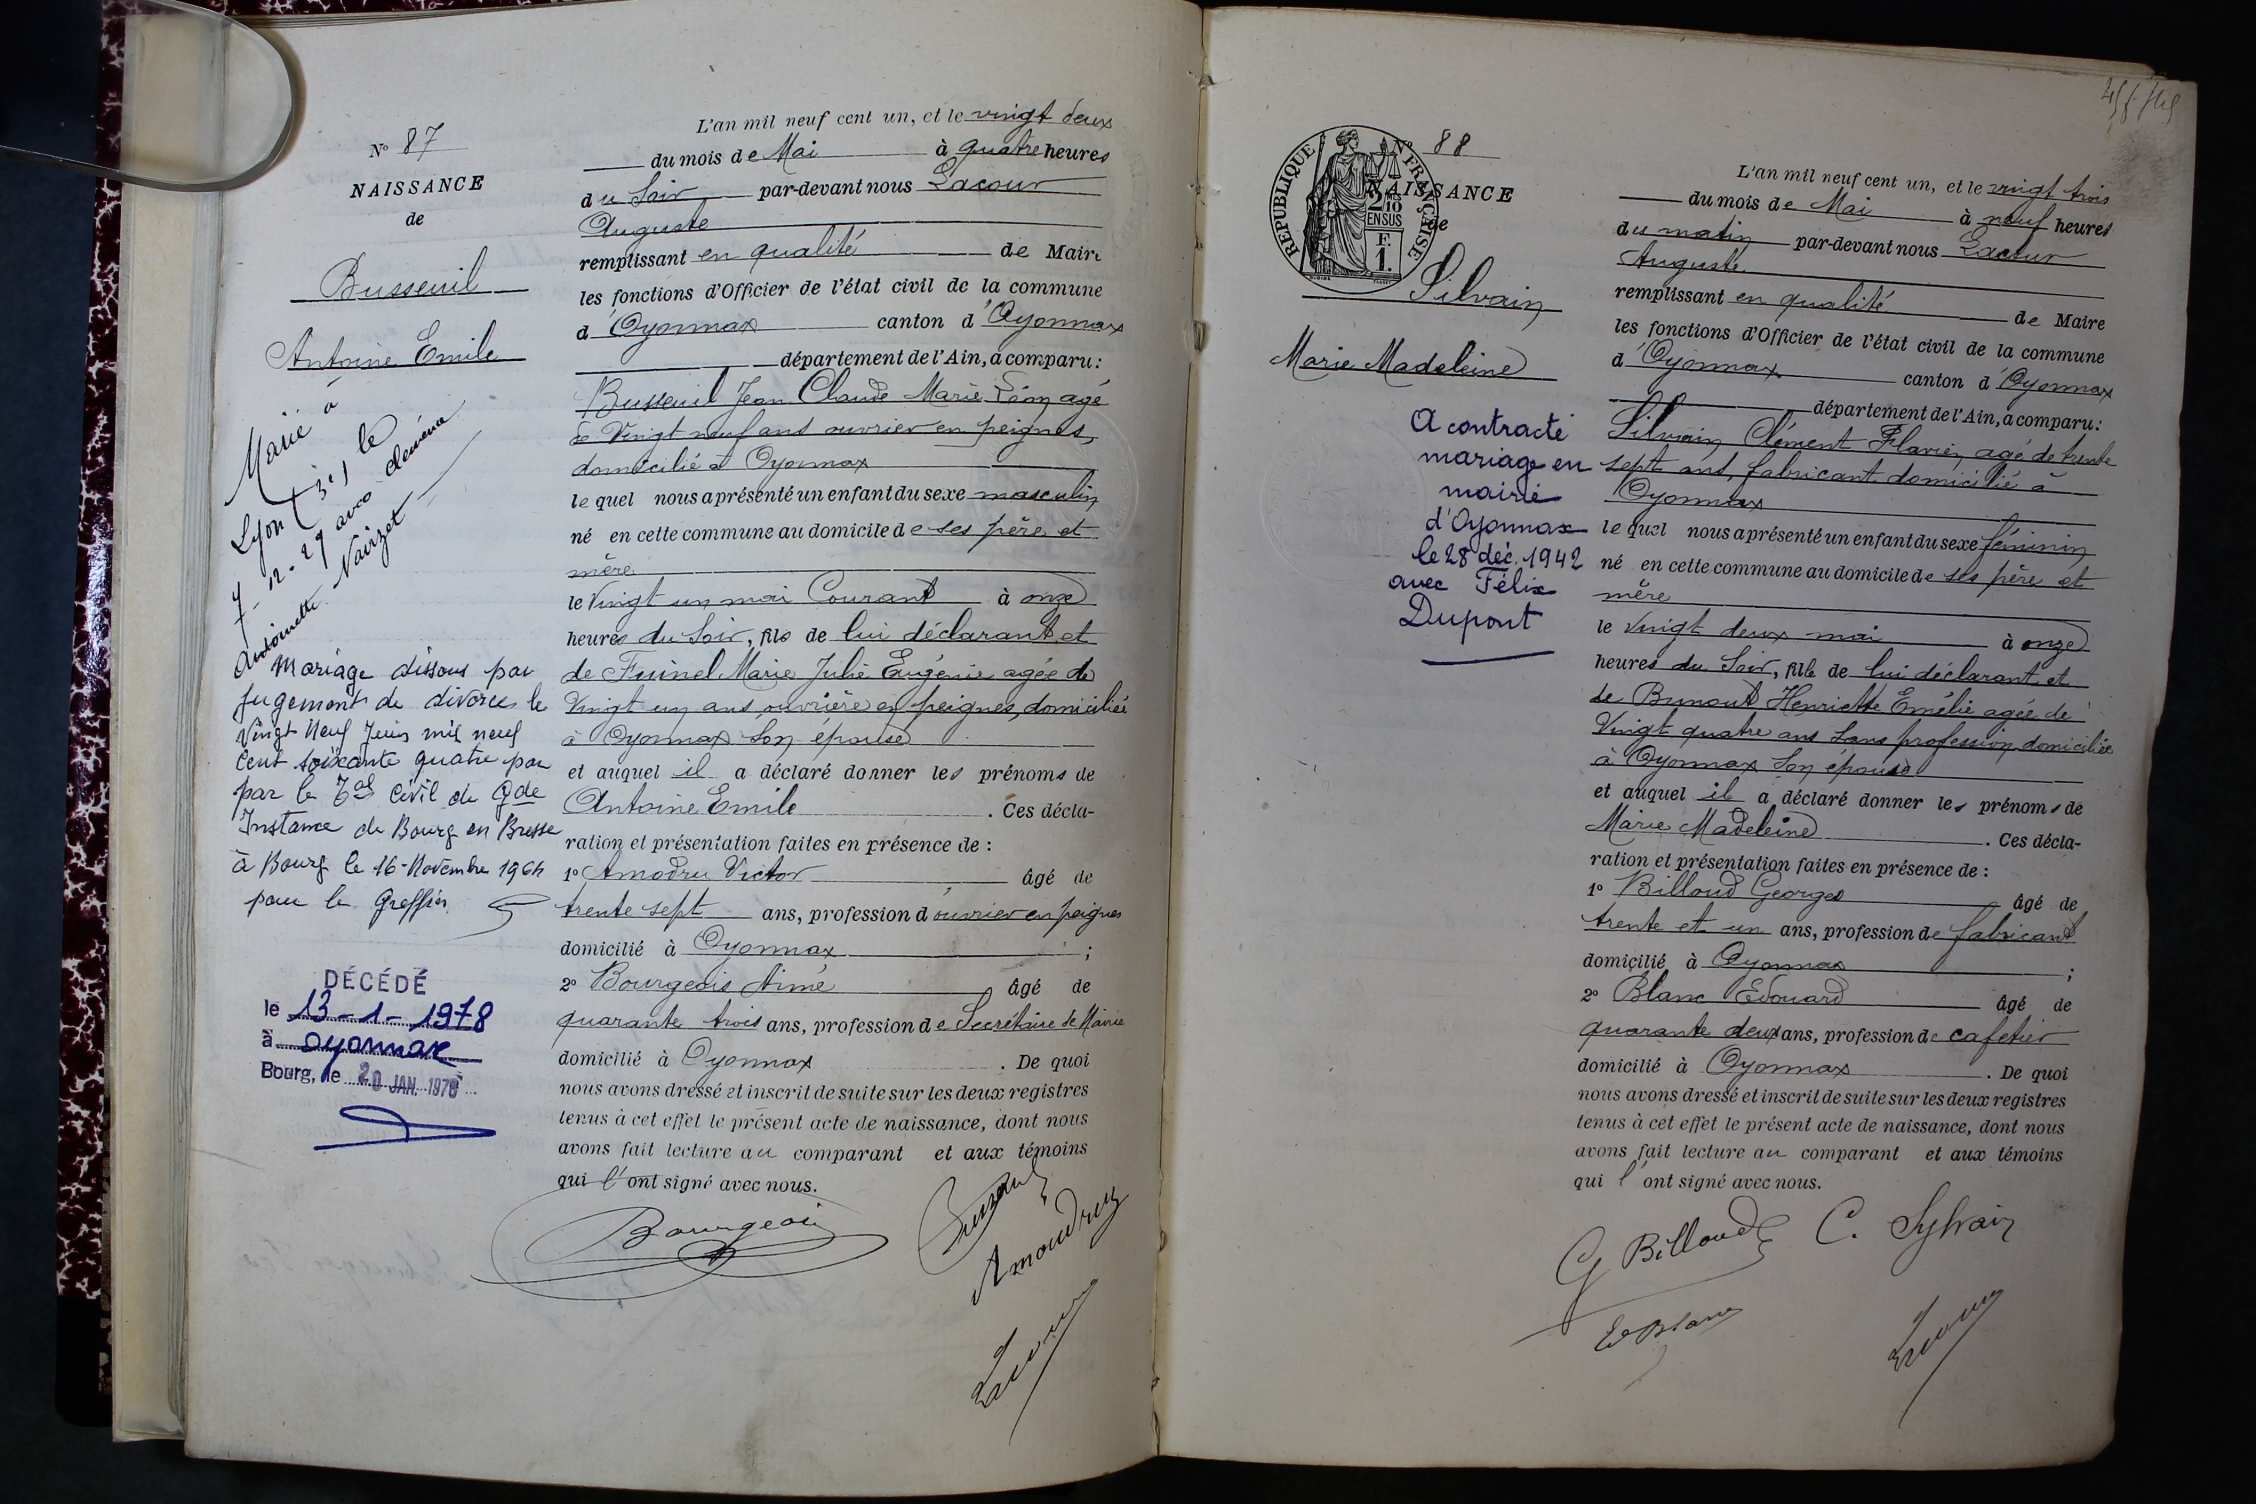 N° 87
NAISSANCE
de
Busseuil
Antoine Emile
Marié à
Lyon (3e) le
7-12-29 avec
Antoinette Noirzet
Mariage dissous par
jugement de divorce le
Vingt Neuf Juin mil neuf
Cent soixante quatre par
par le Tal Civil de Gde
Instance de Bourg en Bresse
à Bourg le 16-Novembre 1964
pour le Greffier
DÉCÉDÉ
le 13-1-1978
à Oyonnax
Bourg, le 20 JAN. 1978
L'an mil neuf cent un, et le vingt deux
du mois de Mai à quatre heures
du Soir par-devant nous Lacour
Auguste
remplissant en qualité de Maire
les fonctions d'Officier de l'état civil de la commune
d'Oyonnax canton d'Oyonnax
département de l'Ain, a comparu:
Busseuil Jean Claude Marie Léon agé
de Vingt neuf ans ouvrier en peignes,
domicilié à Oyonnax
le quel nous a présenté un enfant du sexe masculin
né en cette commune au domicile de ses père et
mère
le Vingt un mai Courant à onze
heures du Soir, fils de lui déclarant et
de Fuinel Marie Julie Eugénie agée de
Vingt un ans, ouvrière en peignes, domiciliée
à Oyonnax Son épouse
et auquel il a déclaré donner les prénoms de
Antoine Emile . Ces décla-
ration et présentation faites en présence de :
1° Amodru Victor âgé de
trente sept ans, profession d'ouvrier en peignes
domicilié à Oyonnax ;
2° Bourgeois Aimé âgé de
quarante trois ans, profession de Secrétaire de Mairie
domicilié à Oyonnax . De quoi
nous avons dressé et inscrit de suite sur les deux registres
tenus à cet effet le présent acte de naissance, dont nous
avons fait lecture au comparant et aux témoins
qui l'ont signé avec nous.
Bourgeois
Busseuil
Amoudruz
Lacour
N° 88
REPUBLIQUE FRANÇAISE
2/10 EN SUS
F. 1.
NAISSANCE
de
Silvain
Marie Madeleine
A contracté
mariage en
mairie
d'Oyonnax
le 28 déc. 1942
avec Félix
Dupont
L'an mil neuf cent un, et le vingt trois
du mois de Mai à neuf heures
du matin par-devant nous Lacour
Auguste
remplissant en qualité de Maire
les fonctions d'Officier de l'état civil de la commune
d'Oyonnax canton d'Oyonnax
département de l'Ain, a comparu:
Silvain Clément Flavien, agé de trente
sept ans, fabricant domicilié à
Oyonnax
le quel nous a présenté un enfant du sexe féminin
né en cette commune au domicile de ses père et
mère
le Vingt deux mai à onze
heures du Soir, fille de lui déclarant et
de Bunout Henriette Emélie agée de
Vingt quatre ans Sans profession domiciliée
à Oyonnax Son épouse
et auquel il a déclaré donner les prénoms de
Marie Madeleine . Ces décla-
ration et présentation faites en présence de :
1° Billoud Georges âgé de
trente et un ans, profession de fabricant
domicilié à Oyonnax ;
2° Blanc Edouard âgé de
quarante deux ans, profession de cafetier
domicilié à Oyonnax . De quoi
nous avons dressé et inscrit de suite sur les deux registres
tenus à cet effet le présent acte de naissance, dont nous
avons fait lecture au comparant et aux témoins
qui l'ont signé avec nous.
G Billoud C. Sylvain
Ed Blanc
Lacour